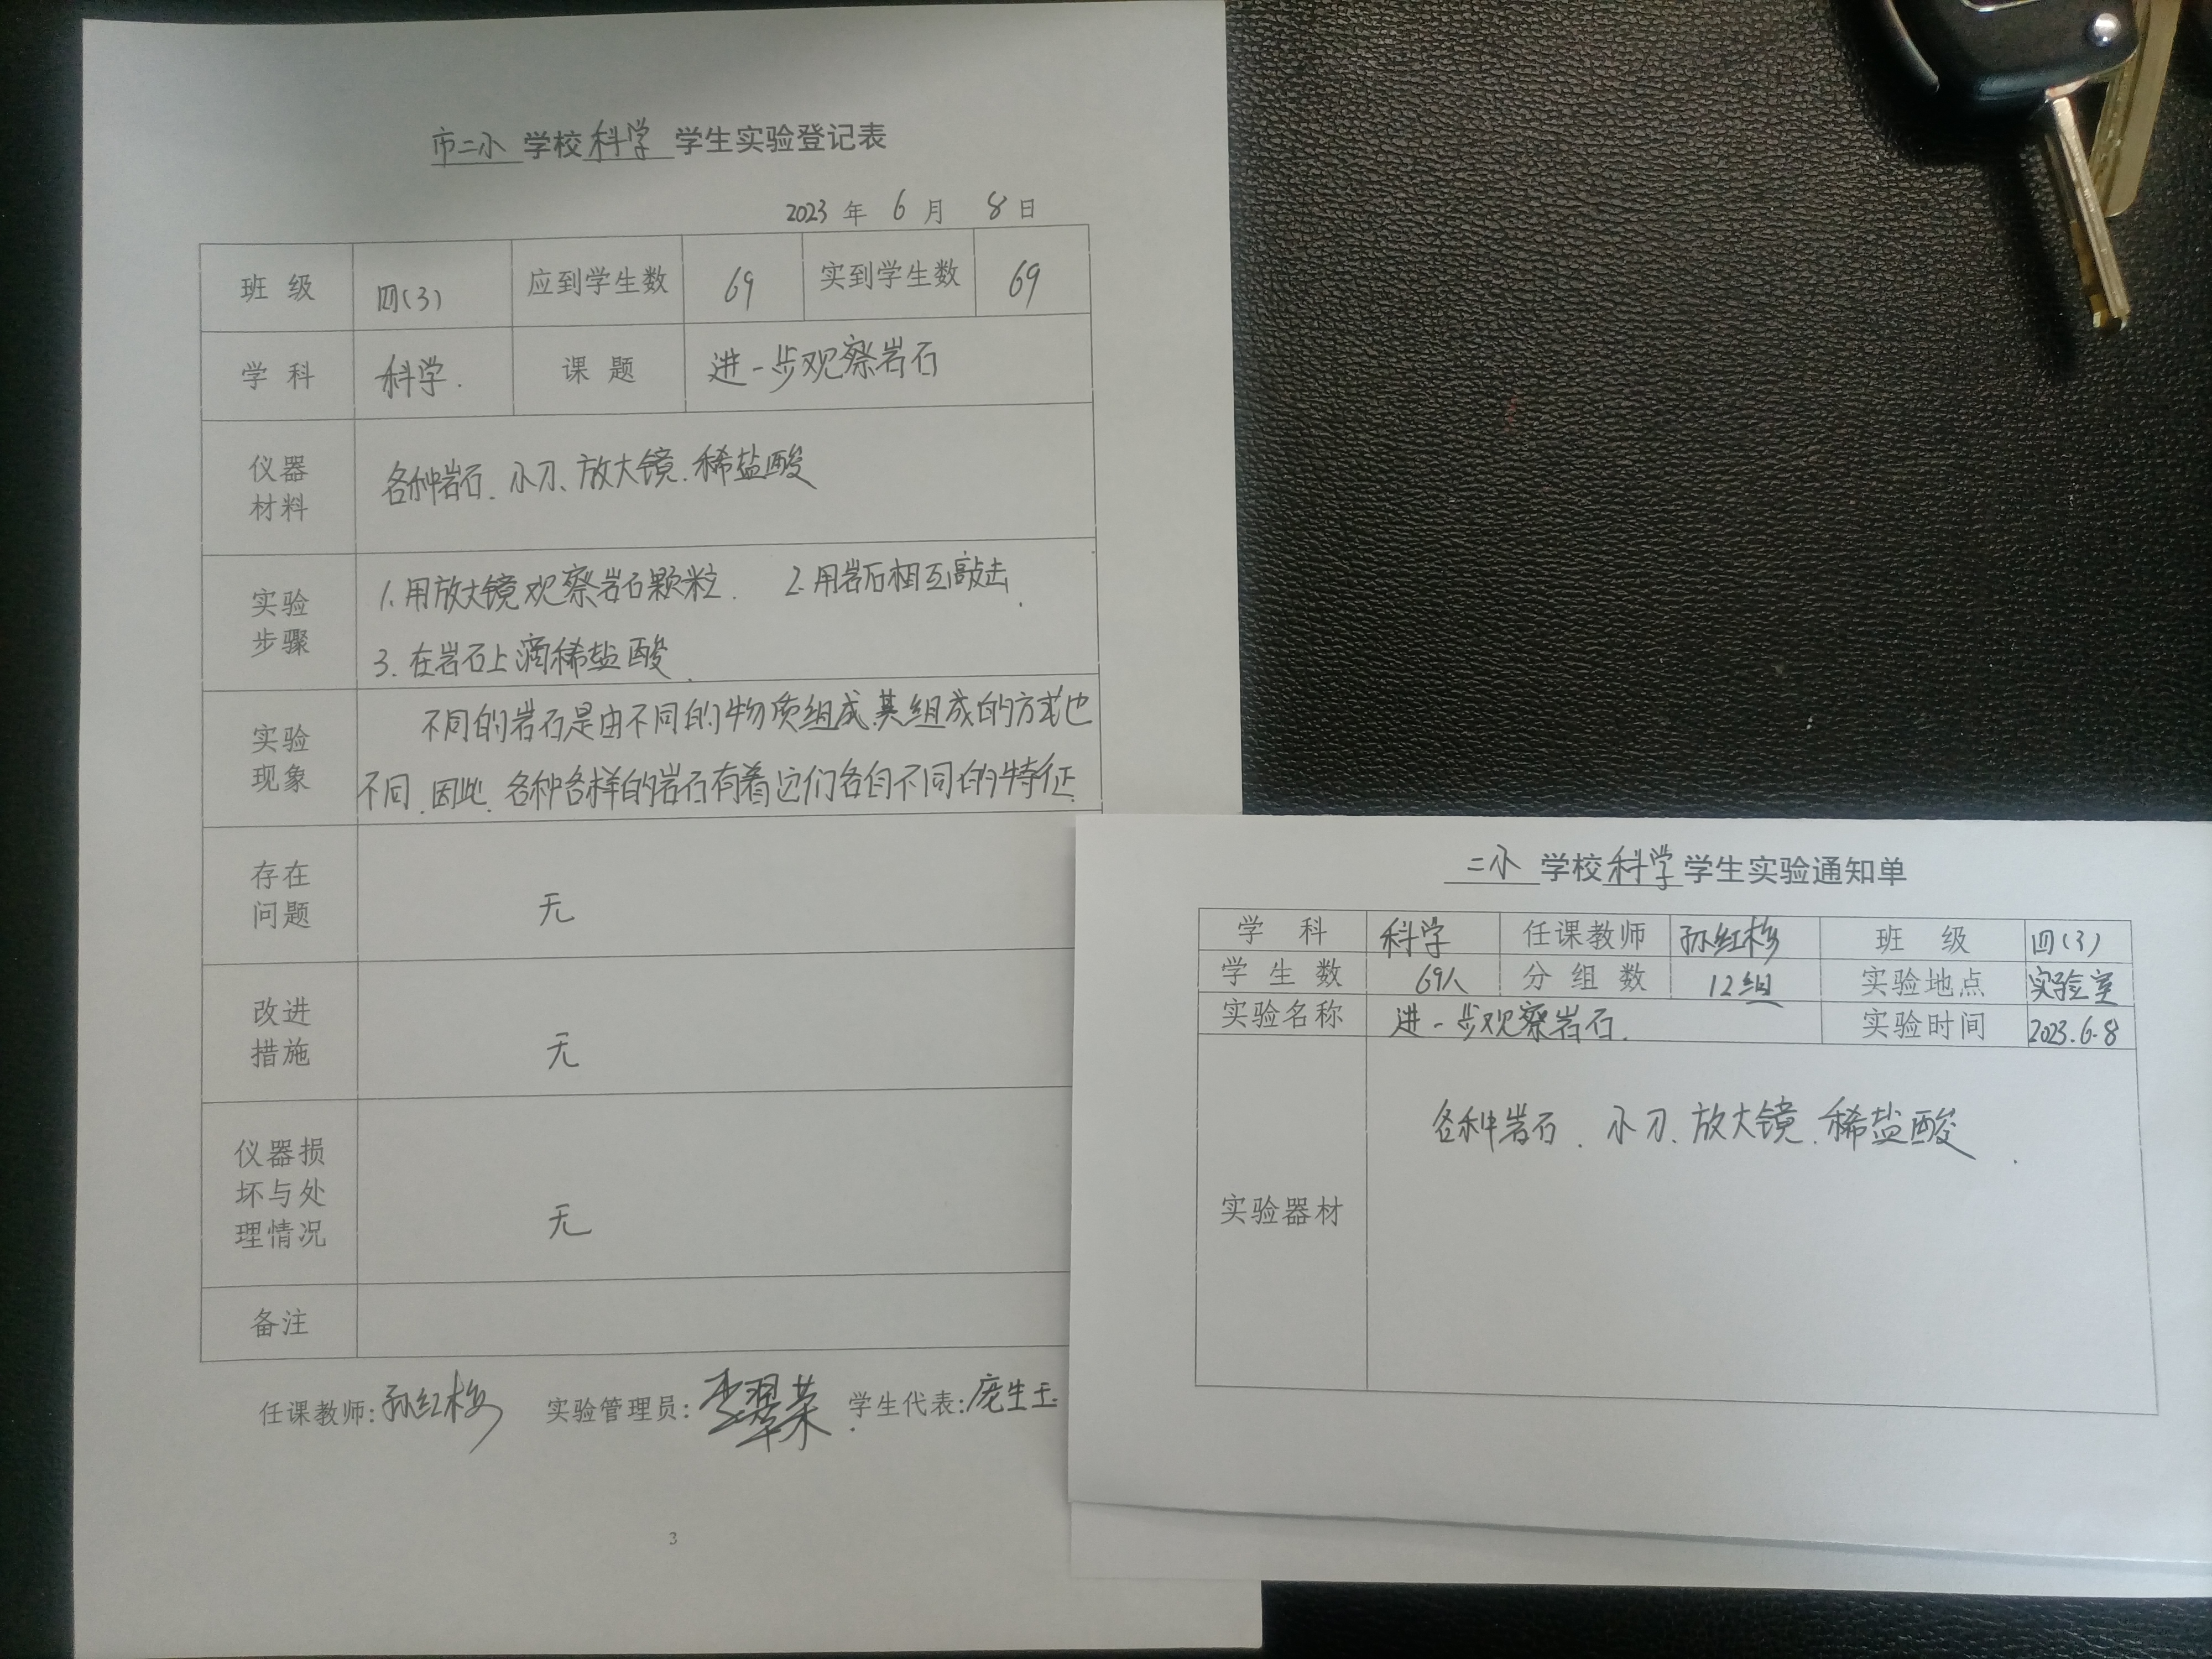 市二小 学校 科学 学生实验登记表
2023 年 6 月 8 日
班 级 四(3) 应到学生数 69 实到学生数 69
学 科 科学. 课 题 进一步观察岩石
仪器
材料
各种岩石、小刀、放大镜、稀盐酸
实验
步骤
1.用放大镜观察岩石颗粒. 2.用岩石相互敲击.
3.在岩石上滴稀盐酸.
实验
现象
不同的岩石是由不同的物质组成,其组成的方式也
不同.因此.各种各样的岩石有着它们各自不同的特征.
存在
问题
无
改进
措施
无
仪器损
坏与处
理情况
无
备注
任课教师:孙红梅 实验管理员:李翠荣. 学生代表:庞生玉
3
二小 学校 科学 学生实验通知单
学 科 科学 任课教师 孙红梅 班 级 四(3)
学 生 数 69人 分 组 数 12组 实验地点 实验室
实验名称 进一步观察岩石. 实验时间 2023.6.8
实验器材
各种岩石、小刀、放大镜、稀盐酸.